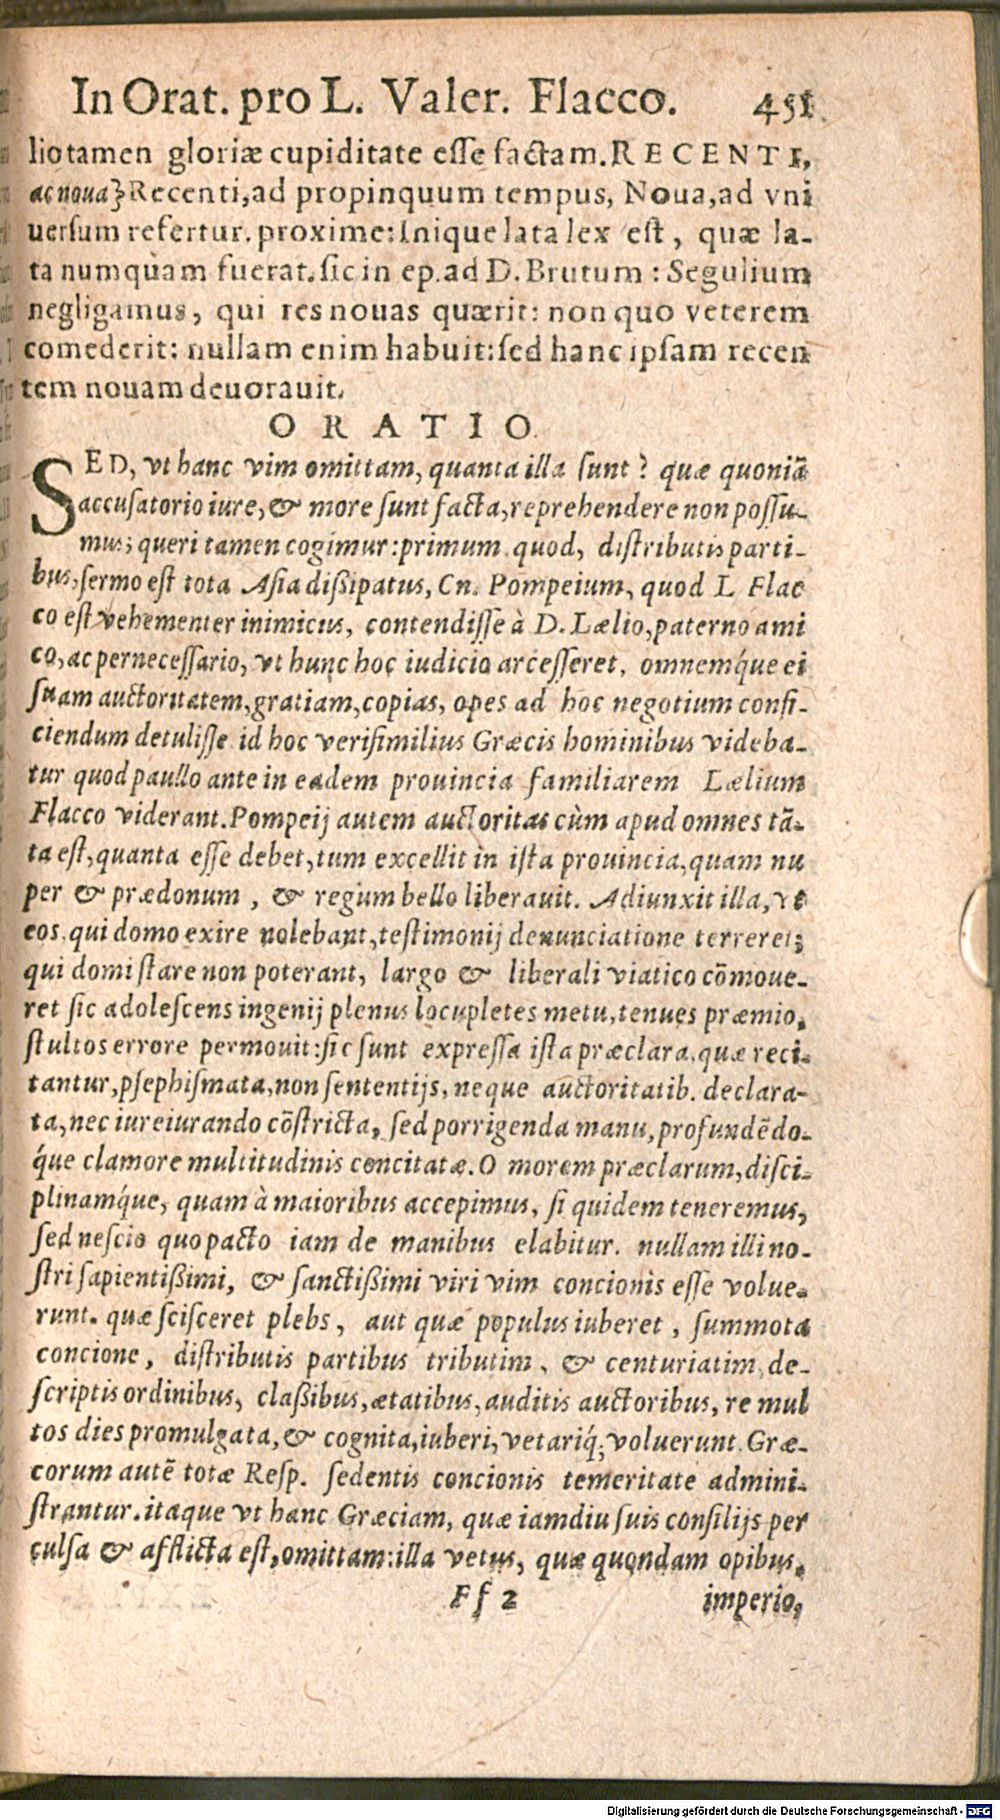 In Orat. pro L. Valer. Flacco. 451
liotamen gloriæ cupiditate esse factam. RECENTI,
ac noua} Recenti, ad propinquum tempus, Noua, ad vni
uersum refertur. proxime: Inique lata lex est, quæ la-
ta numquam fuerat. sic in ep. ad D. Brutum: Segulium
negligamus, qui res nouas quærit: non quo veterem
comederit: nullam enim habuit: sed hanc ipsam recen
tem nouam deuorauit.
ORATIO.
SED, vt hanc vim omittam, quanta illa sunt? quæ quoniã
accusatorio iure, & more sunt facta, reprehendere non possu-
mus; queri tamen cogimur: primum quod, distributis parti-
bus, sermo est tota Asia dißipatus, Cn. Pompeium, quod L Flac
co est vehementer inimicus, contendisse à D. Lælio, paterno ami
co, ac pernecessario, vt hunc hoc iudicio arcesseret, omnemq́ue ei
suam auctoritatem, gratiam, copias, opes ad hoc negotium confi-
ciendum detulisse. id hoc verisimilius Græcis hominibus videba-
tur quod paullo ante in eadem prouincia familiarem Lælium
Flacco viderant. Pompeij autem auctoritas cùm apud omnes tã-
ta est, quanta esse debet, tum excellit in ista prouincia, quam nu
per & prædonum, & regum bello liberauit. Adiunxit illa, vt
eos, qui domo exire nolebant, testimonij denunciatione terreret;
qui domi stare non poterant, largo & liberali viatico cõmoue-
ret sic adolescens ingenij plenus locupletes metu, tenues præmio,
stultos errore permouit: sic sunt expressa ista præclara, quæ reci-
tantur, psephismata, non sententijs, neque auctoritatib. declara-
ta, nec iureiurando cõstricta, sed porrigenda manu, profundẽdo-
q́ue clamore multitudinis concitatæ. O morem præclarum, disci-
plinamq́ue, quam à maioribus accepimus, si quidem teneremus,
sed nescio quo pacto iam de manibus elabitur. nullam illi no-
stri sapientißimi, & sanctißimi viri vim concionis esse volue-
runt. quæ scisceret plebs, aut quæ populus iuberet, summota
concione, distributis partibus tributim, & centuriatim, de-
scriptis ordinibus, claßibus, ætatibus, auditis auctoribus, re mul
tos dies promulgata, & cognita, iuberi, vetariq́; voluerunt. Græ-
corum autẽ totæ Resp. sedentis concionis temeritate admini-
strantur. itaque vt hanc Græciam, quæ iamdiu suis consilijs per
culsa & afflicta est, omittam: illa vetus, quæ quondam opibus,
Ff 2 imperio,
Digitalisierung gefördert durch die Deutsche Forschungsgemeinschaft - DFG